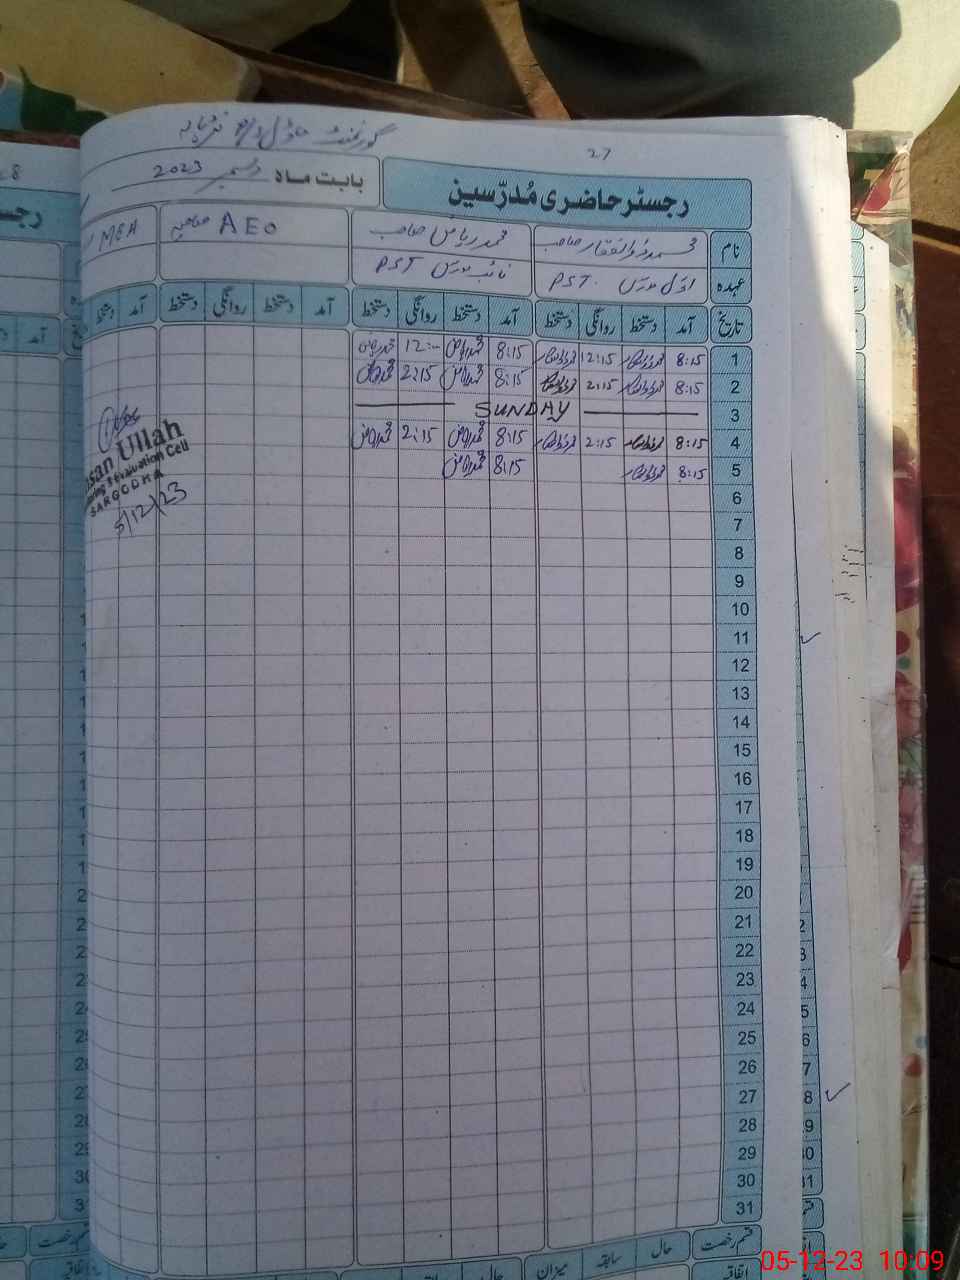 27
گورنمنٹ ماڈل
رجسٹر حاضری مُدرّسین
بابت ماہ دسمبر 2023
نام محمد ذوالفقار صاحب محمد ریاض صاحب AEO صاحبہ MEA
عہدہ اوّل مدرس PST. نائب مدرس PST
تاریخ آمد دستخط روانگی دستخط آمد دستخط روانگی دستخط آمد دستخط روانگی دستخط آمد دستخط
1 8:15 12:15 8:15 محمد ریاض 12:-
2 8:15 2:15 8:15 محمد ریاض 2:15
3 SUNDAY
4 8:15 2:15 8:15 محمد ریاض 2:15 محمد ریاض
5 8:15 8:15 محمد ریاض
6
7
8
9
10
11
12
13
14
15
16
17
18
19
20
21
22
23
24
25
26
27
28
29
30
31
san Ullah
Evaluation Cell
SARGODHA
5/12/23
قسم رخصت حال سابقہ میزان حال
05-12-23 10:09